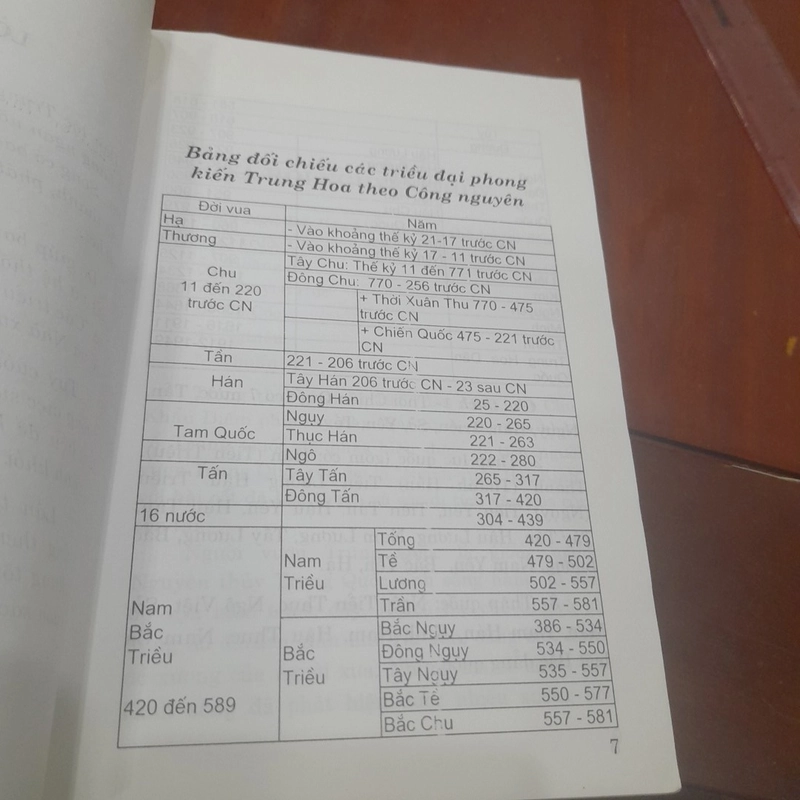 Bảng đối chiếu các triều đại phong
kiến Trung Hoa theo Công nguyên
Đời vua Năm
Hạ - Vào khoảng thế kỷ 21-17 trước CN
Thương - Vào khoảng thế kỷ 17 - 11 trước CN
Chu
11 đến 220
trước CN
Tây Chu: Thế kỷ 11 đến 771 trước CN
Đông Chu: 770 - 256 trước CN
+ Thời Xuân Thu 770 - 475
trước CN
+ Chiến Quốc 475 - 221 trước
CN
Tần 221 - 206 trước CN
Hán Tây Hán 206 trước CN - 23 sau CN
Đông Hán 25 - 220
Tam Quốc
Ngụy 220 - 265
Thục Hán 221 - 263
Ngô 222 - 280
Tấn
Tây Tấn 265 - 317
Đông Tấn 317 - 420
16 nước 304 - 439
Nam
Bắc
Triều
420 đến 589
Nam
Triều
Tống 420 - 479
Tề 479 - 502
Lương 502 - 557
Trần 557 - 581
Bắc
Triều
Bắc Ngụy 386 - 534
Đông Ngụy 534 - 550
Tây Ngụy 535 - 557
Bắc Tề 550 - 577
Bắc Chu 557 - 581
7